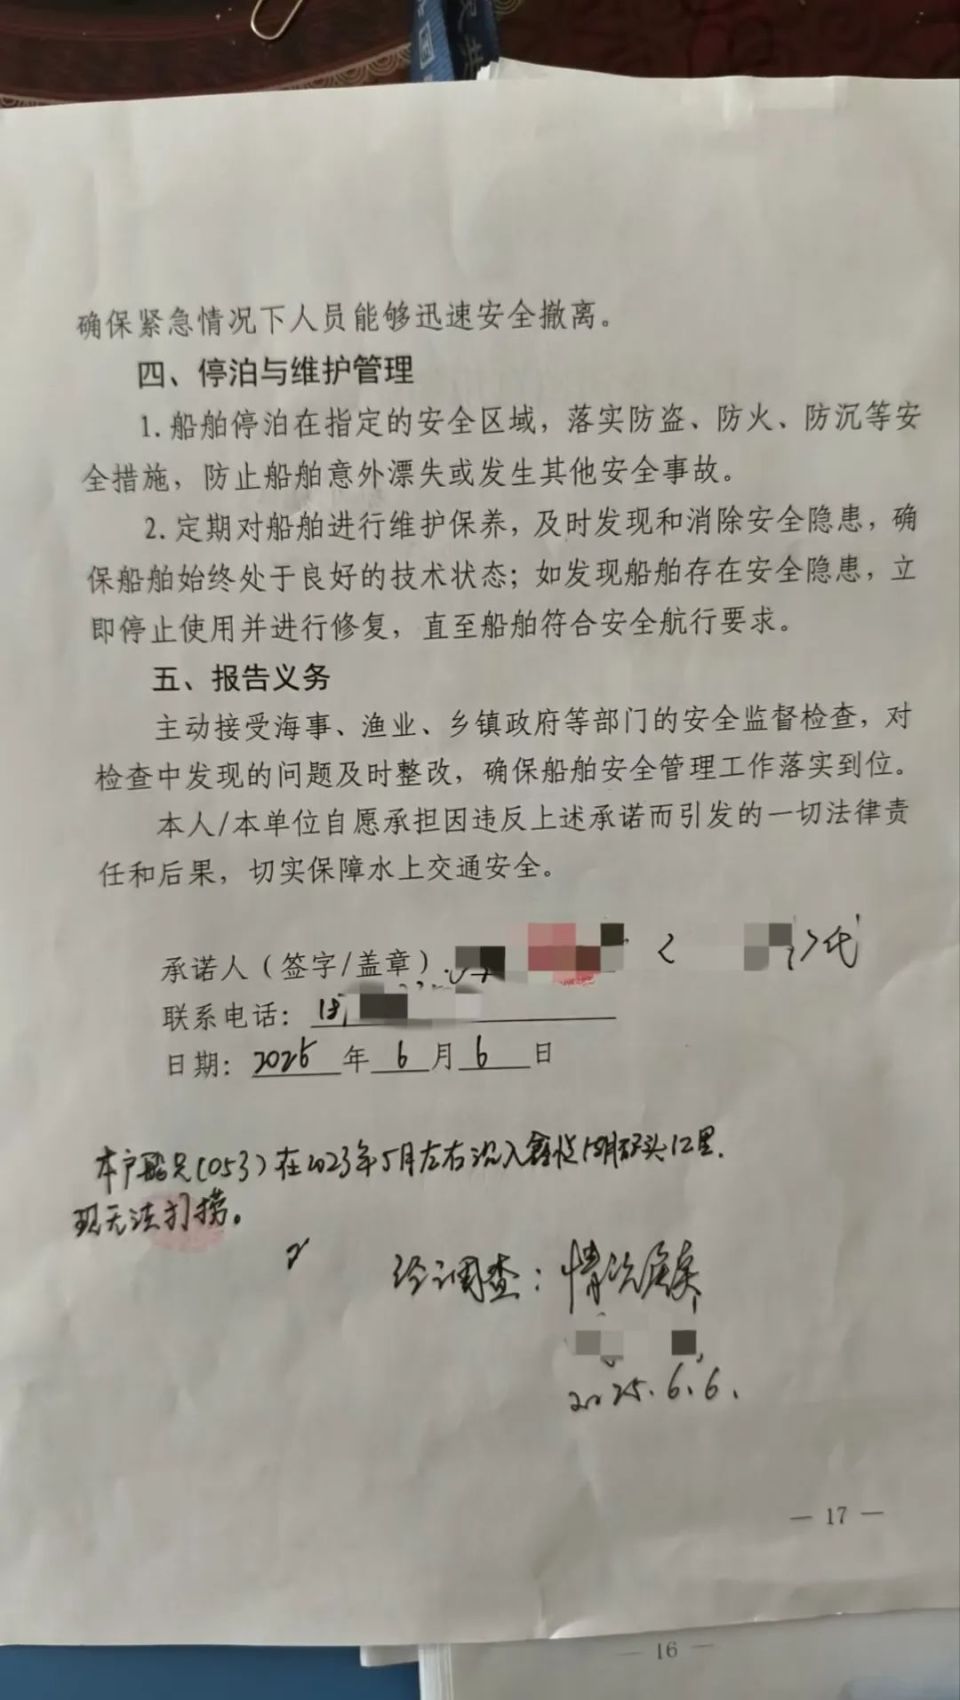 确保紧急情况下人员能够迅速安全撤离。
四、停泊与维护管理
1. 船舶停泊在指定的安全区域，落实防盗、防火、防沉等安
全措施，防止船舶意外漂失或发生其他安全事故。
2. 定期对船舶进行维护保养，及时发现和消除安全隐患，确
保船舶始终处于良好的技术状态；如发现船舶存在安全隐患，立
即停止使用并进行修复，直至船舶符合安全航行要求。
五、报告义务
主动接受海事、渔业、乡镇政府等部门的安全监督检查，对
检查中发现的问题及时整改，确保船舶安全管理工作落实到位。
本人/本单位自愿承担因违反上述承诺而引发的一切法律责
任和后果，切实保障水上交通安全。
承诺人（签字/盖章） 代
联系电话：
日期：2025年6月6日
本户船只(053)在2023年5月左右沉入 码头
现无法打捞。
经调查：情况属实
2025.6.6.
— 17 —
— 16 —